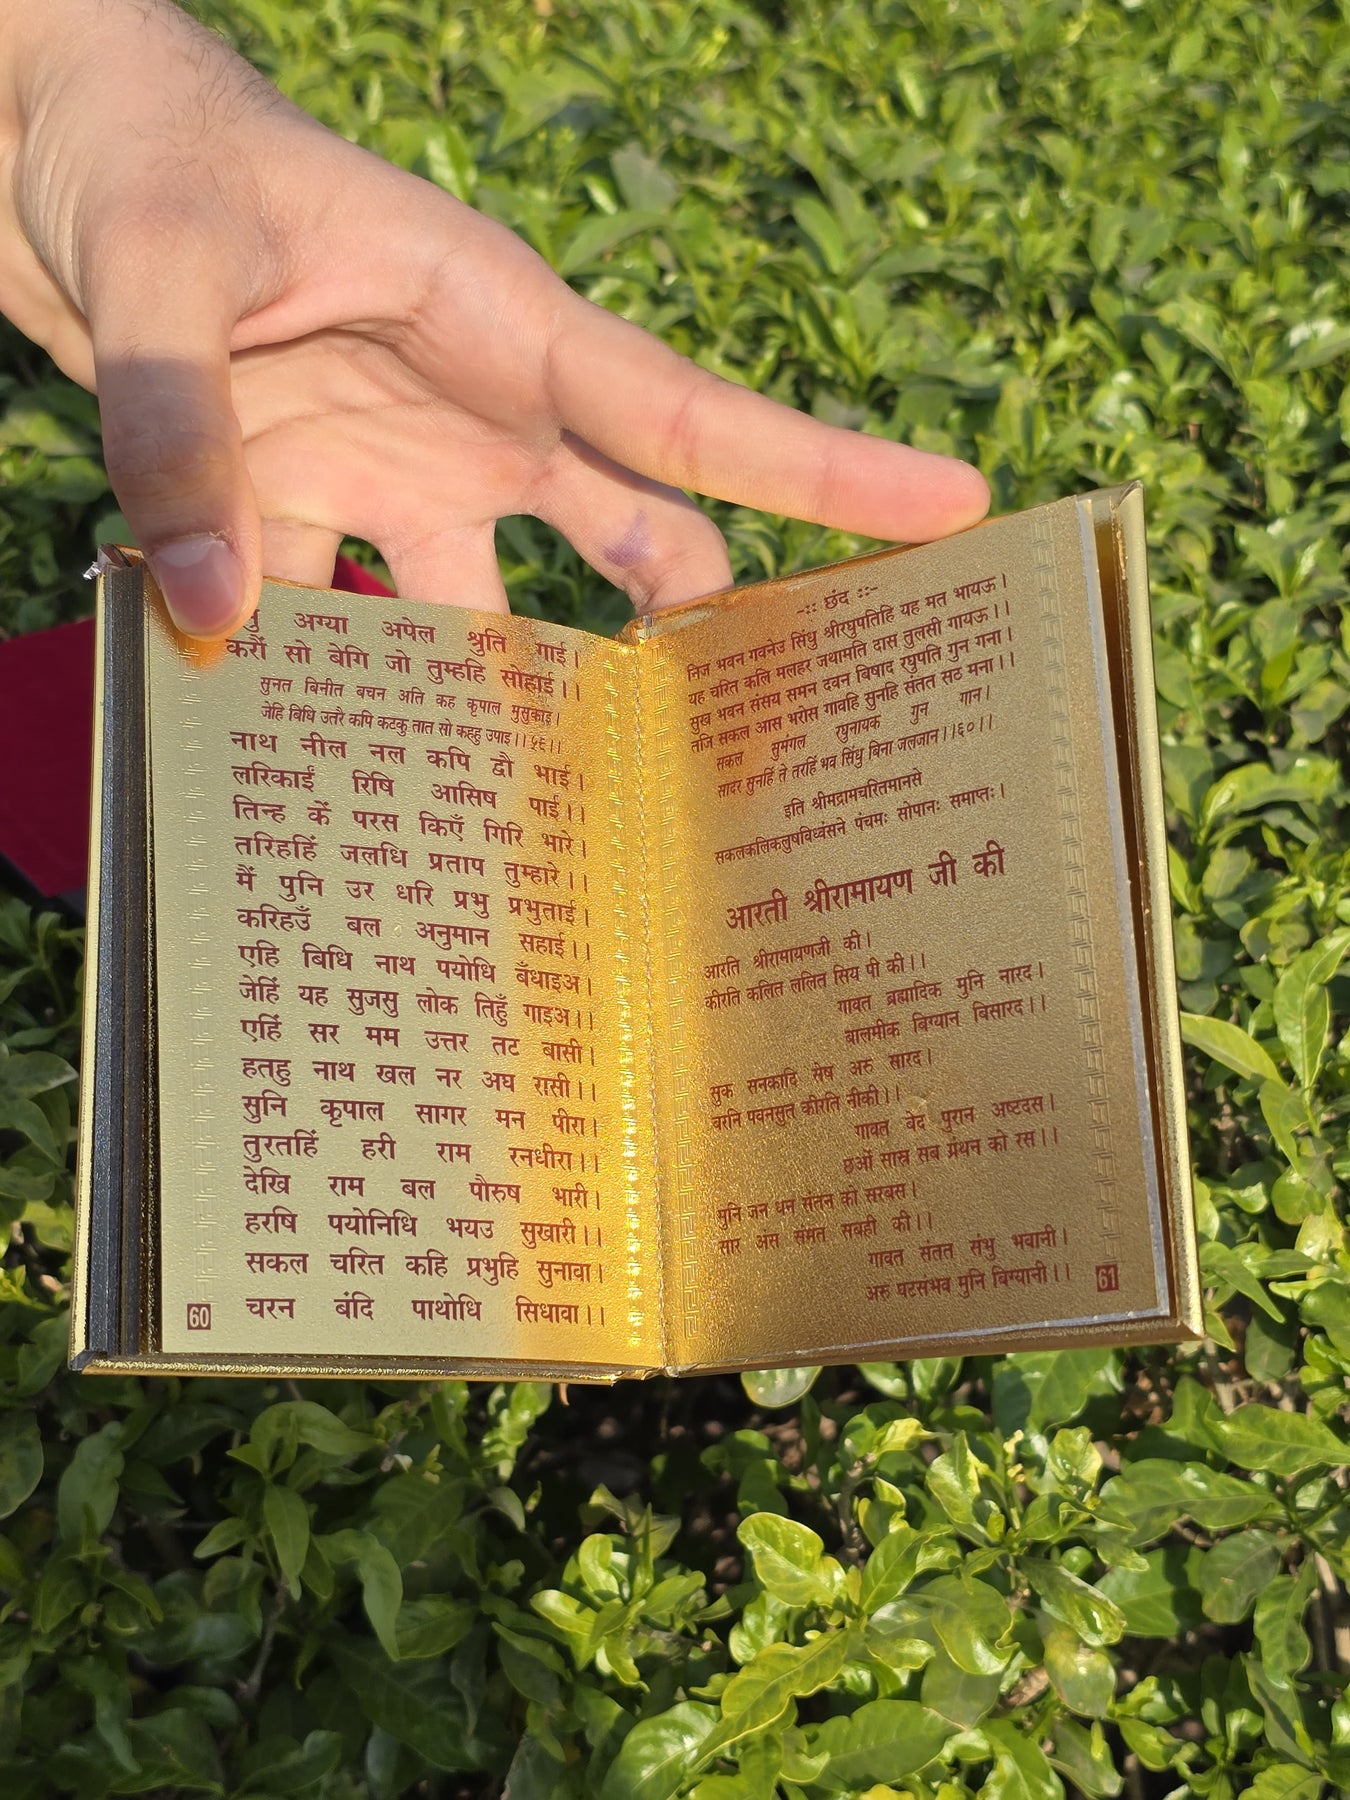 अग्या अपेल श्रुति गाई।
करौं सो बेगि जो तुम्हहि सोहाई।।
सुनत बिनीत बचन अति कह कृपाल मुसुकाइ।
जेहि बिधि उतरै कपि कटकु तात सो कहहु उपाइ।।५९।।
नाथ नील नल कपि द्वौ भाई।
लरिकाईं रिषि आसिष पाई।।
तिन्ह कें परस किएँ गिरि भारे।
तरिहहिं जलधि प्रताप तुम्हारे।।
मैं पुनि उर धरि प्रभु प्रभुताई।
करिहउँ बल अनुमान सहाई।।
एहि बिधि नाथ पयोधि बँधाइअ।
जेहिं यह सुजसु लोक तिहुँ गाइअ।।
एहिं सर मम उत्तर तट बासी।
हतहु नाथ खल नर अघ रासी।।
सुनि कृपाल सागर मन पीरा।
तुरतहिं हरी राम रनधीरा।।
देखि राम बल पौरुष भारी।
हरषि पयोनिधि भयउ सुखारी।।
सकल चरित कहि प्रभुहि सुनावा।
चरन बंदि पाथोधि सिधावा।।
60
-:: छंद ::-
निज भवन गवनेउ सिंधु श्रीरघुपतिहि यह मत भायऊ।
यह चरित कलि मलहर जथामति दास तुलसी गायऊ।।
सुख भवन संसय समन दवन बिषाद रघुपति गुन गना।
तजि सकल आस भरोस गावहि सुनहि संतत सठ मना।।
सकल सुमंगल रघुनायक गुन गान।
सादर सुनहिं ते तरहिं भव सिंधु बिना जलजान।।६०।।
इति श्रीमद्रामचरितमानसे
सकलकलिकलुषविध्वंसने पंचमः सोपानः समाप्तः।
आरती श्रीरामायण जी की
आरति श्रीरामायणजी की।
कीरति कलित ललित सिय पी की।।
गावत ब्रह्मादिक मुनि नारद।
बालमीक बिग्यान विसारद।।
सुक सनकादि सेष अरु सारद।
बरनि पवनसुत कीरति नीकी।।
गावत बेद पुरान अष्टदस।
छओं सास्र सब ग्रंथन को रस।।
मुनि जन धन संतन को सरबस।
सार अंस संमत सबही की।।
गावत संतत संभु भवानी।
अरु घटसंभव मुनि बिग्यानी।।
61